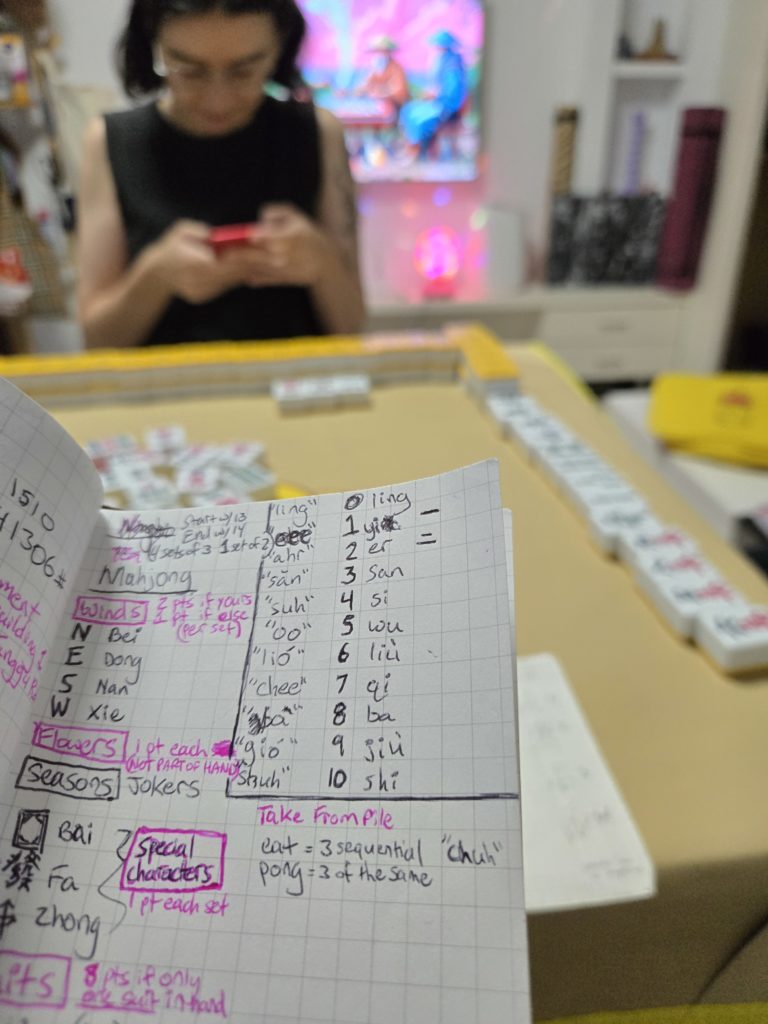 1510
1306#
Start w/ 13
End w/ 14
4 sets of 3 1 set of 2
Mahjong
Winds 2 pts if yours
1 pt if else
(per set)
N Bei
E Dong
S Nan
W Xie
Flowers 1 pt each
(NOT PART OF HAND)
Seasons Jokers
Bai
發 Fa
Zhong
Special
characters
1 pt each set
8 pts if only
one suit in hand
"ling" 0 ling
1 yi 一
"ahr" 2 er 二
"săn" 3 san
"suh" 4 si
"oo" 5 wu
"lió" 6 liù
"chee" 7 qi
"ba" 8 ba
"gió" 9 jiù
"shuh" 10 shi
Take From Pile
eat = 3 sequential "chuh"
pong = 3 of the same